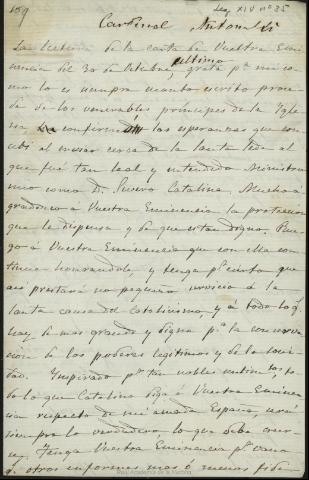 159
Leg XIV nº 35
Cardenal Antonelli
La lectura de la carta de Vuestra Emi
nencia del 30 de Octubre último, grata pª mi co
mo lo es siempre cuanto escrito proce
da de los venerables príncipes de la Igle
sia confirmó las esperanzas que con
cebí al enviar cerca de la Santa Sede al
que fué tan leal y entendido Ministro
mio como D. Severo Catalina. Mucho a
gradezco á Vuestra Eminencia la proteccion
que le dispensa y de que es tan digno. Rue
go á Vuestra Eminencia que con ella con
tinue honrandole, y tenga pr cierto que
asi prestará no pequeño servicio á la
santa causa del catolicismo, y á todo lo q.
hay de mas grande y digno pª la conserva
cion de los poderes legitimos y de la socie
dad. Inspirado pr tan nobles sentim.tos to
do lo que Catalina diga á Vuestra Eminen
cia respecto de mi amada España, será
siempre lo verdadero lo que debe creer
se. Tenga Vuestra Eminencia pr vano
s otros informes mas ó menos fide
Real Academia de la Historia